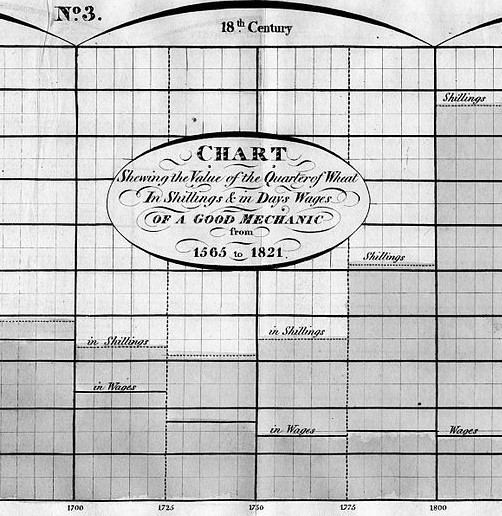 No. 3.
18th. Century
Shillings
CHART
Shewing the Value of the Quarter of Wheat
In Shillings & in Days Wages
OF A GOOD MECHANIC
from
1565 to 1821.
Shillings
in Shillings
in Shillings
in Wages
in Wages
Wages
1700 1725 1750 1775 1800